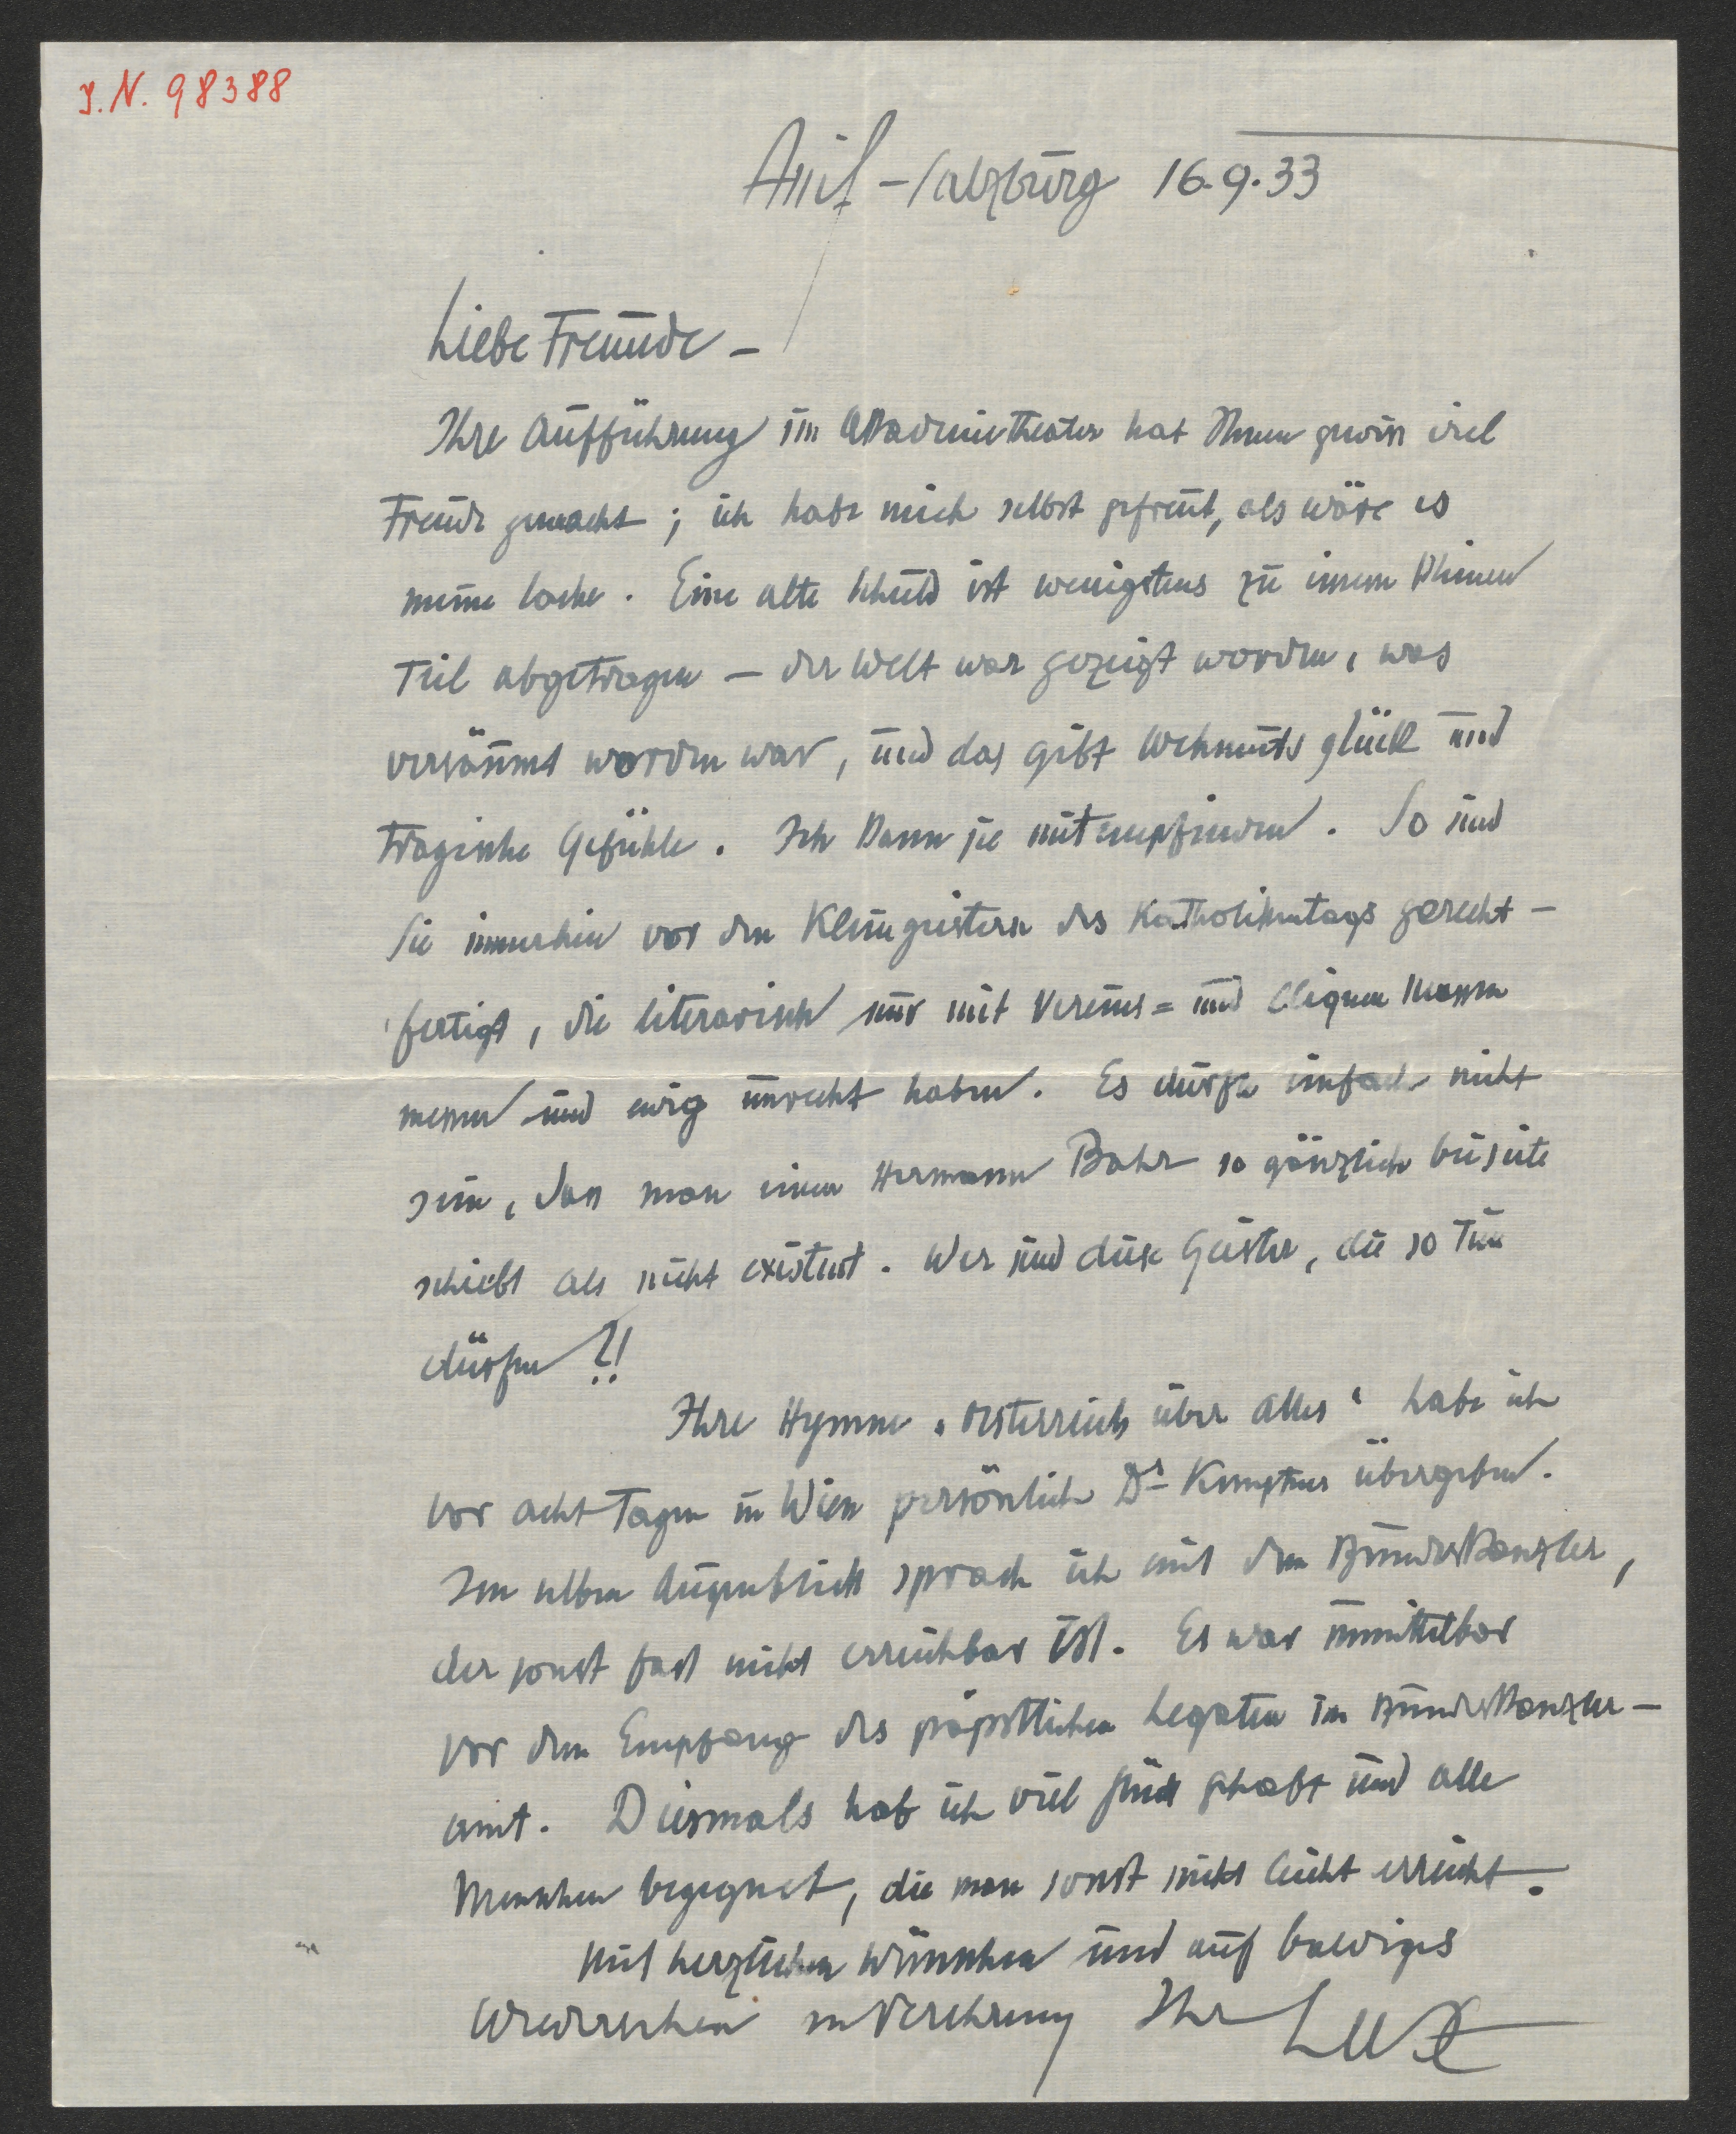 J.N. 98388
Anif - Salzburg 16.9.33
Liebe Freunde -
Ihre Aufführung im Akademietheater hat Ihnen gewiss viel
Freude gemacht; ich habe mich selbst gefreut, als wäre es
meine Sache. Eine alte Schuld ist wenigstens zu einem kleinen
Teil abgetragen - der Welt war gezeigt worden, was
versäumt worden war, und das gibt Wehmuts glück und
tragische Gefühle. Ich kann sie mitempfinden. So sind
Sie immerhin vor den Kleingeistern des Katholikentags gerecht-
fertigt, die literarisch nur mit Vereins= und Cliquen massen
messen und ewig unrecht haben. Es dürfte einfach nicht
sein, dass man einen Hermann Bahr so gänzlich beiseite
schiebt als nicht existent. Wer sind diese Geister, die so tun
dürfen?!
Ihre Hymne „Österreich über alles" habe ich
vor acht Tagen in Wien persönlich Dr übergeben.
Im selben Augenblick sprach ich mit dem Bundeskanzler,
der sonst fast nicht erreichbar ist. Es war unmittelbar
vor dem Empfang des päpstlichen Legaten im Bundeskanzler-
amt. Diesmals hab ich viel Glück gehabt und alle
Menschen begegnet, die man sonst nicht leicht erreicht.
Mit herzlichen Wünschen und auf baldiges
Wiedersehen in Verehrung Ihr Lux